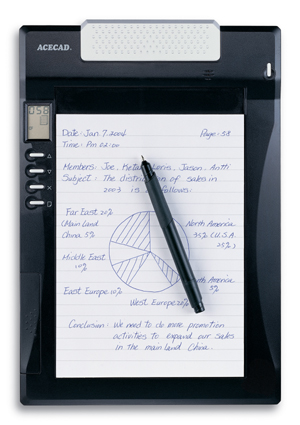 ACECAD
058
Date: Jan 7. 2004 Page: 58
Time: Pm 02:00
Members: Joe, Jason, Anth
Subject: The of sales in
2003 is follows:
Far East 20%
(Main Land
China 5%
North America
35% (U.S.A.
25%)
Middle East
10%
South America
5%
East Europe 10%
West Europe 20%
Conclusion: We need to do more promotion
activities to expand our sales
in the main land China.